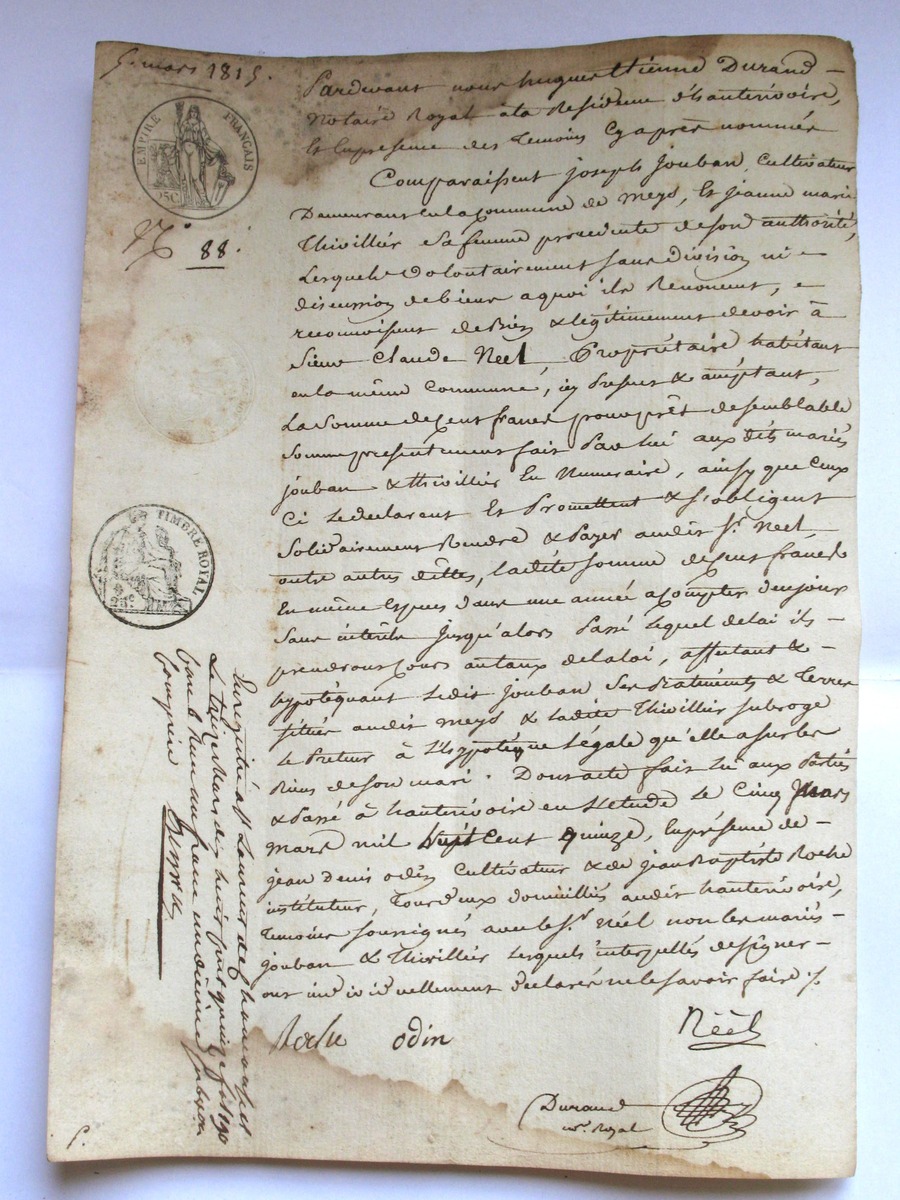 5. mars 1815.
EMPIRE FRANÇAIS
25C.
88.
TIMBRE ROYAL
25c.
Pardevant nous hugues Etienne Durand
Notaire Royal à la Residence d'hauterivoire,
Et En presence des Temoins Cy après nommés
Comparaissent joseph jouban Cultivateur
Demeurant en la Commune de Meys, Et jeanne marie
Thivillier sa femme procedente de son authorité,
Lesquels volontairement sans division ni
discussion de biens a quoi ils Renoncent,
reconnoissent de Bien & légitimement devoir à
Sieur Claude Néél Propriétaire habitant
en la même Commune, icy Present & acceptant,
La Somme de Cent francs pour prêt de semblable
Somme presentement fait Par lui aux dits mariés
jouban & thivillier En Numeraire, ainsy que Ceux
Ci le declarent Et Promettent & s'obligent
Solidairement Rendre & Payer audit Sr. Néél
outre autres dettes, ladite Somme de Cent francs
En même Espèces dans une année a Compter de ce jour
Sans intérêts jusqu'alors Passé lequel delai ils
prendront Cours au taux de la loi, affectant &
hypotéquant ledit jouban Ses Batiments & Terres
situés audit Meys & ladite Thivillier subroge
Le Preteur à l'hypotéque légale qu'elle a sur les
Biens de son mari. Dont acte fait lu aux Parties
& Passé à hauterivoire en l'étude Le Cinq
Mars mil huit Cent quinze, En présence de
jean Denis odin Cultivateur & de jean Baptiste Roche
instituteur, Tous deux domiciliés audit hauterivoire,
Temoins soussignés avec le Sr. Néél non les mariés
jouban & Thivillier lesquels interpellés de signer
ont individuellement déclaré ne le savoir faire ./.
Roche odin Néél
Durand
nre. Royal
Enregistré à St Laurent de Chamousset
Le treize Mars dix huit cent quinze fo 190
Reçu un franc un dixieme
Compris